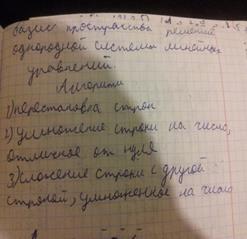 базис пространства решений
однородной системы линейных
уравнений.
Алгоритм
1) перестановка строк
2) умножение строки на число,
отличное от нуля
3) сложение строки с другой
строкой, умноженное на число